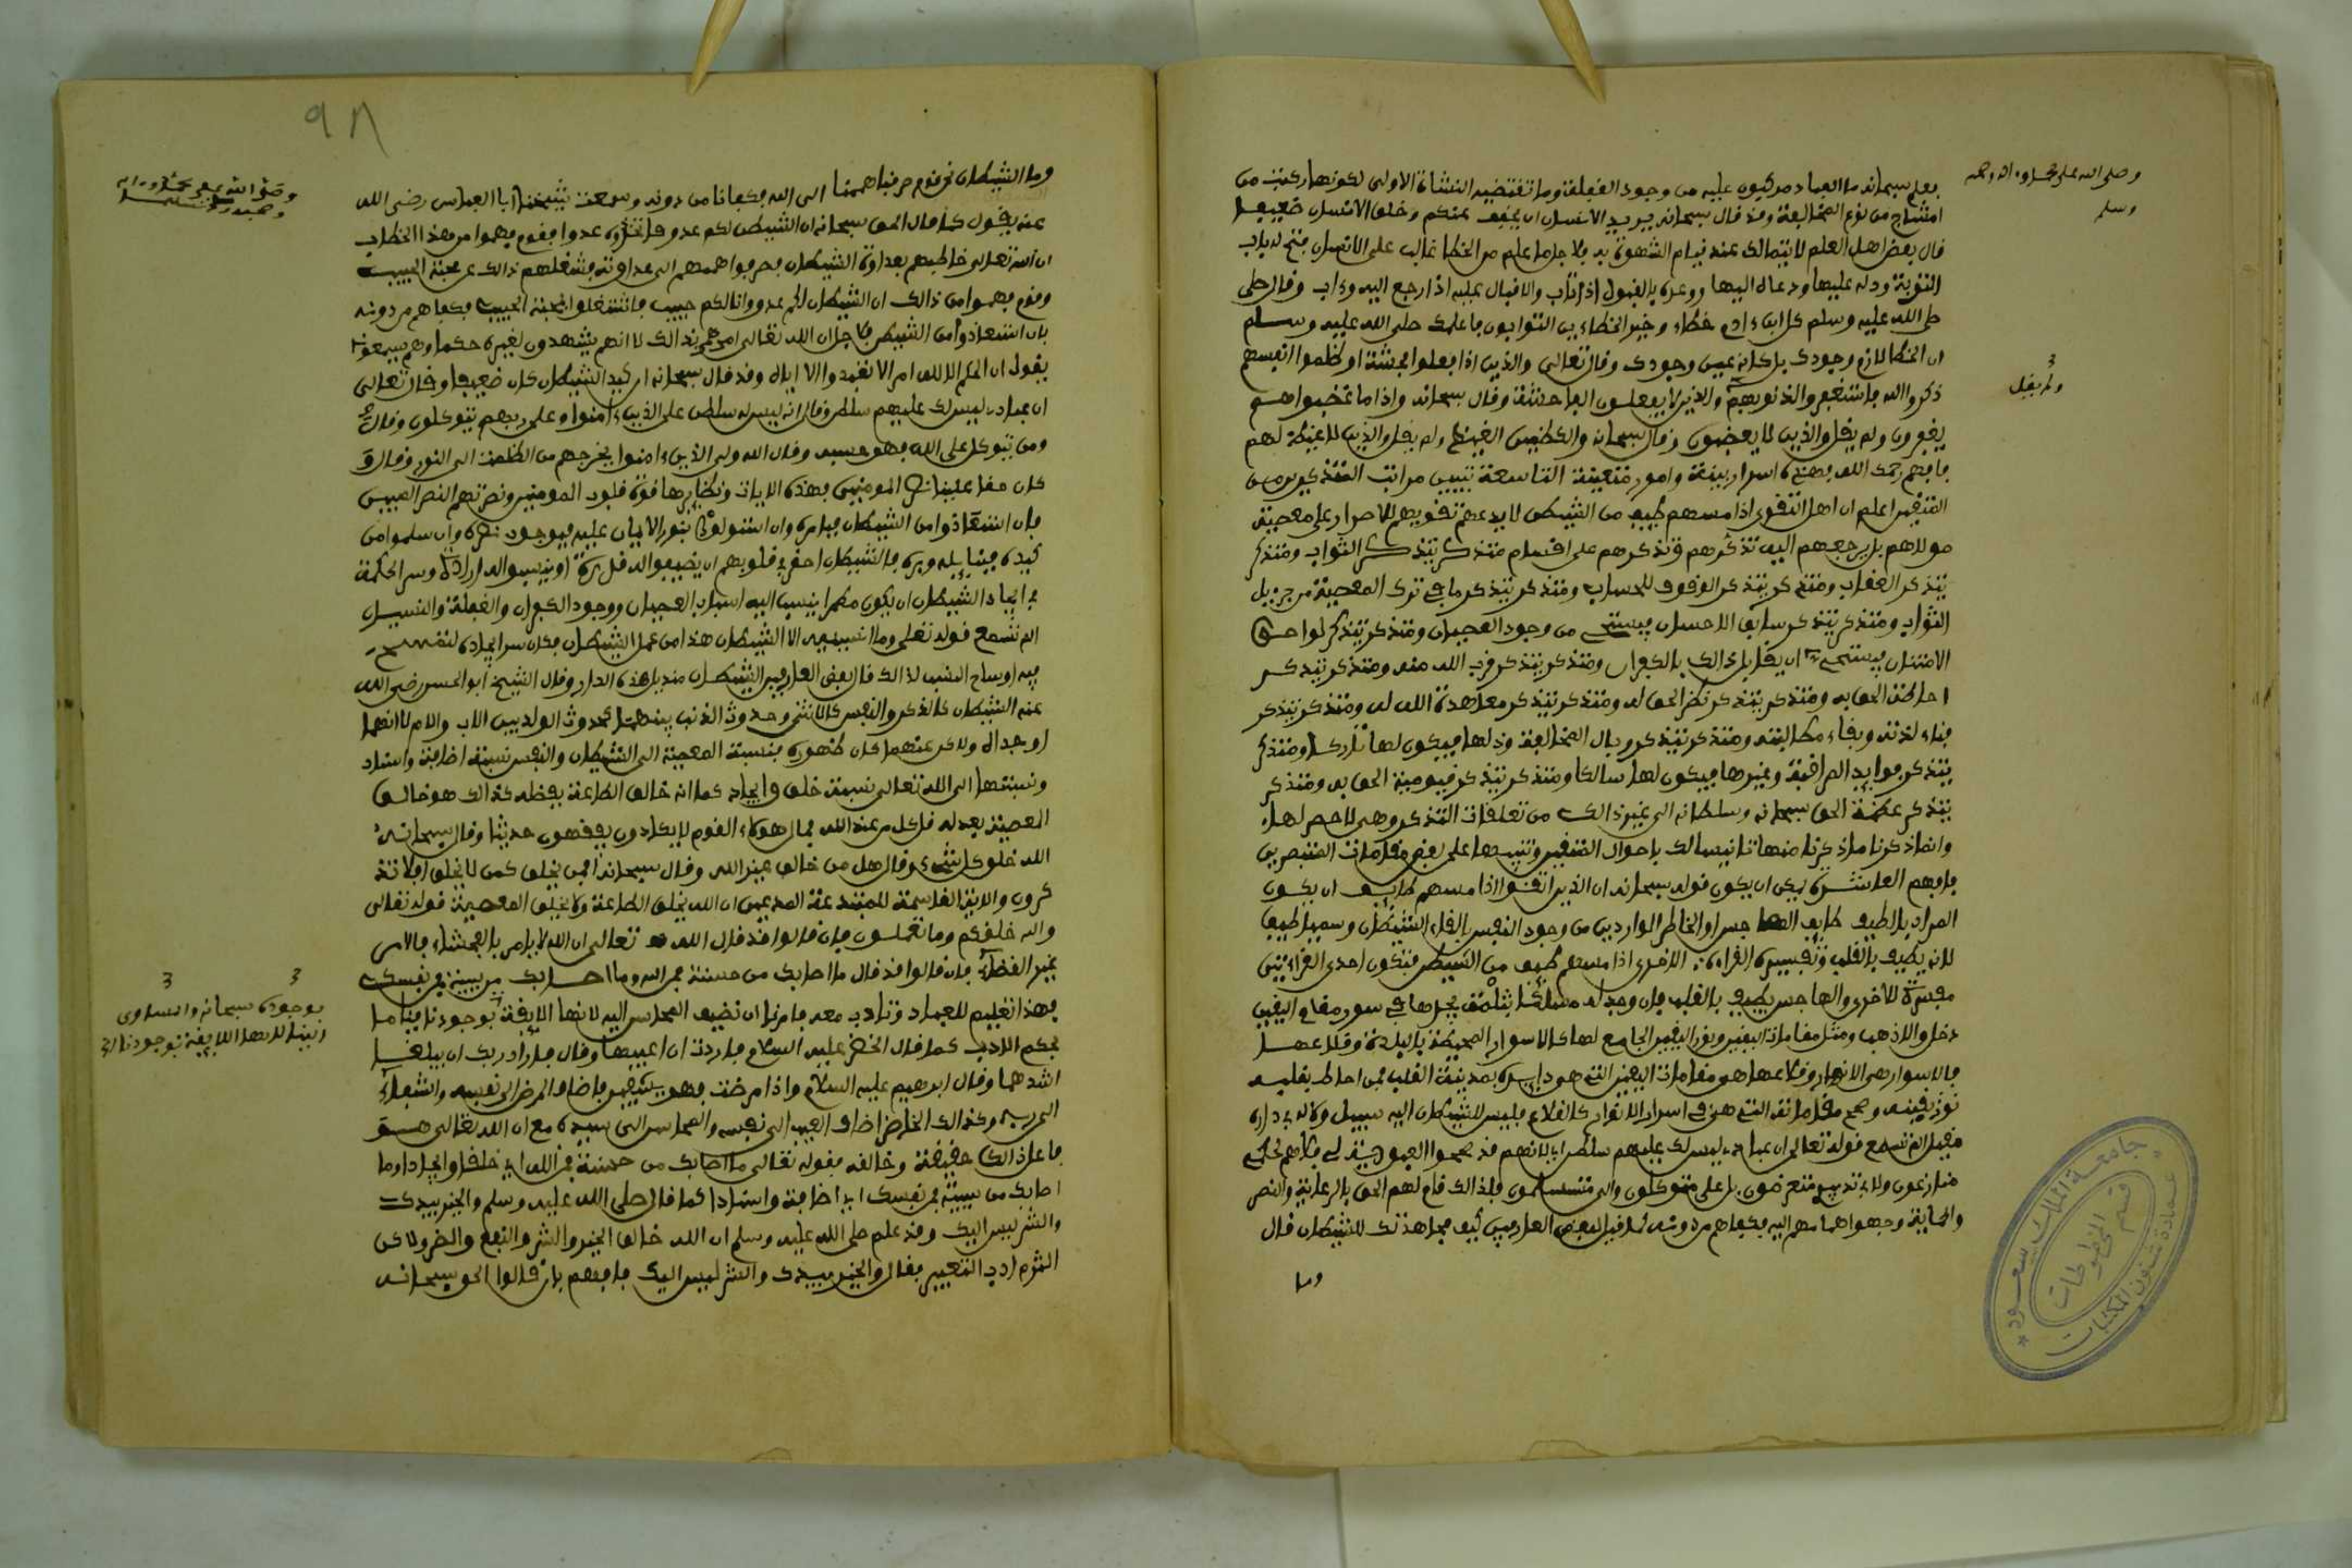 وصلى الله على محمد وءاله وصحبه
وسلم
بعلم سبحانه ما العباد مركبون عليه من وجود الغفلة وما تقتضيه النشأة الاولى لكونها ركبت من
امشاج من نوع المخالفة وقد قال سبحانه يريد الله ان يخفف عنكم وخلق الانسان ضعيفا
قال بعض اهل العلم لا يتمالك عند قيام الشهوة به فلاجل ما علم من الخطا غالب على الانسان فتح له باب
التوبة ودله عليها ودعاه اليها ووعده بالقبول اذا تاب والاقبال عليه اذا رجع اليه وءاب وقال صلى
صلى الله عليه وسلم كل ابن ءادم خطاء وخير الخطاءين التوابون فاعلمك صلى الله عليه وسلم
ان الخطا لازم وجودك بل كانه عين وجودك وقال تعالى والذين اذا فعلوا فحشة او ظلموا انفسهم
ذكروا الله فاستغفروا لذنوبهم والذين لا يفعلون الفاحشة وقال سبحانه واذا ما غضبوا هم
ولم يقل
يغفرون ولم يقل والذين لا يغضبون وقال سبحانه والكظمين الغيظ ولم يقل والذين لا غيظ لهم
فافهم رحمك الله فهذه اسرار بينة وامور متعينة التاسعة تبيين مراتب المتذكرين من
المتقين اعلم ان اهل التقوى اذا مسهم طيف من الشيطن لا يدعهم تقويهم للاصرار على معصية
مولاهم بل يرجعهم اليه تذكرهم وتذكرهم على اقسام متذكر يتذكر الثواب ومتذكر
يتذكر العقاب ومتذكر يتذكر الوقوف للحساب ومتذكر يتذكر ما في ترك المعصية من جزيل
الثواب ومتذكر يتذكر سابق الاحسان فيستحي من وجود العصيان ومتذكر يتذكر لواحق
الامتنان فيستحي ان يقابل ذالك بالكفران ومتذكر يتذكر قرب الله منه ومتذكر يتذكر
احاطة الحق به ومتذكر يتذكر نظر الحق له ومتذكر يتذكر معاهدة الله له ومتذكر يتذكر
فناء لذته وبقاء مطالبته ومتذكر يتذكر وبال المخالفة وذلها فيكون لها تاركا ومتذكر
يتذكر فوايد المرافبة وغيرها فيكون لها سالكا ومتذكر يتذكر قيومية الحق به ومتذكر
يتذكر عظمة الحق سبحانه وسلطانه الى غير ذالك من تعلقات التذكر وهي لا حصر لها
وانما ذكرنا ما ذكرنا منها تانيسا لك باحوال المتقين وتنبيها على بعض مقامات المتبصرين
فافهم العاشرة يمكن ان يكون قوله سبحانه ان الذين اتقوا اذا مسهم طايف ان يكون
المراد بالطيف طايف الهاجس او الخاطر الواردين من وجود النفس بالقاء الشيطان وسمي طيفا
لانه يطيف بالقلب وتفسيره القراءة الاخرى اذا مسهم طيف من الشيطن فتكون احدى القراءتين
مفسرة للاخرى والهاجس يطيف بالقلب فان وجد له مسلكا بثلمة يجدها في سور مقام اليقين
دخل والا ذهب ومثل مقامات اليقين ونور اليقين الجامع لها كالاسوار المحيطة بالبلدة وقلاعها
فالاسوار هي الانوار وقلاعها هي مقامات اليقين التي هي دايرة بمدينة القلب فمن احاط بقلبه
نور يقينه وصحح مقاماته التي هي اسوار الانوار كالقلاع فليس للشيطان اليه سبيل ولا له بداره
مقيل الم تسمع قوله تعالى ان عبادي ليس لك عليهم سلطن اي لانهم قد صححوا العبودية لي فلاهم لحكمي
منازعون ولا في تدبيري معترضون بل علي متوكلون والي مستسلمون فلذالك قام لهم الحق بالرعاية والنصر
والحماية وجهوا هممهم اليه فكفاهم من دونه قيل لبعض العارفين كيف مجاهدتك للشيطان قال
وما
جامعة الملك سعود
قسم المخطوطات
عمادة شئون المكتبات
٩٨
وما الشيطان نحن قوم صرفنا هممنا الى الله فكفانا من دونه وسمعت شيخنا ابا العباس رضي الله
عنه يقول لما قال الحق سبحانه ان الشيطن لكم عدو فاتخذوه عدوا فقوم فهموا من هذا الخطاب
ان الله تعالى خاطبهم بعداوة الشيطان فصرفوا هممهم الى عداوته فشغلهم ذالك عن محبة الحبيب
وقوم فهموا من ذالك ان الشيطان لكم عدو وانا لكم حبيب فاشتغلوا بمحبة الحبيب فكفاهم من دونه
فان استعاذوا من الشيطن فلاجل ان الله تعالى امرهم بذالك لا انهم يشهدون لغيره حكما وهم يسمعونه
يقول ان الحكم الا لله امر الا تعبدوا الا اياه وقد قال سبحانه ان كيد الشيطان كان ضعيفا وقال تعالى
ان عبادي ليس لك عليهم سلطن وقال انه ليس له سلطن على الذين ءامنوا وعلى ربهم يتوكلون وقال
ومن يتوكل على الله فهو حسبه وقال الله ولي الذين ءامنوا يخرجهم من الظلمت الى النور وقال و
كان حقا علينا نصر المومنين فهذه الايات ونظايرها قوة قلوب المومنين ونصرتهم النصر المبين
فان استعاذوا من الشيطان فبامره وان استولوا بنور الايمان عليه فبوجود نصره وان سلموا من
كيده فبتاييده وبره فالشيطان احقر في قلوبهم ان يضيفوا اليه قدرة او ينسبوا اليه ارادة وسر الحكمة
في ايجاد الشيطان ان يكون مظهرا ينسب اليه اسباب العصيان ووجود الكفران والغفلة والنسيان
الم تسمع قوله تعلى وما انسنيه الا الشيطن هذا من عمل الشيطن فكان سر ايجاده لتمسح
فيه اوساخ النسب لذالك قال بعض العارفين الشيطان منديل هذه الدار وقال الشيخ ابو الحسن رضي الله
عنه الشيطان كالذكر والنفس كالانثى وحدوث الذنب بينهما كحدوث الولد بين الاب والام لا انهما
اوجداه ولاكن عنهما كان ظهوره فنسبة المعصية الى الشيطان والنفس نسبة اضافة واسناد
ونسبتها الى الله تعالى نسبة خلق وايجاد كما انه خالق الطاعة بفضله كذالك هو خالق
المعصية بعدله قل كل من عند الله فمال هؤلاء القوم لا يكادون يفقهون حديثا وقال سبحانه
الله خلق كل شيء وقال هل من خالق غير الله وقال سبحانه افمن يخلق كمن لا يخلق افلا تذ
كرون والاية القاصمة للمبتدعة المدعين ان الله يخلق الطاعة ولا يخلق المعصية قوله تعالى
والله خلقكم وما تعملون فان قالوا قد قال الله تعالى ان الله لا يامر بالفحشاء فالامر
غير القضاء فان قالوا قد قال ما اصابك من حسنة فمن الله وما اصابك من سيئة فمن نفسك
فهذا تعليم للعباد وتادب معه فامرنا ان نضيف المحاسن اليه لانها الايقة بوجودنا قياما
بوجوده سبحانه والمساوي
الينا لانها اللايقة بوجودنا
بحكم الادب كما قال الخضر عليه السلام فاردت ان اعيبها وقال فاراد ربك ان يبلغا
اشدهما وقال ابرهيم عليه السلام واذا مرضت فهو يشفين فاضاف المرض الى نفسه والشفاء
الى ربه وكذالك الخضر اضاف العيب الى نفسه والمحاسن الى سيده مع ان الله تعالى هو
فاعل ذالك حقيقة وخالقه فقوله تعالى ما اصابك من حسنة فمن الله اي خلقا وايجادا وما
اصابك من سيئة فمن نفسك اي اضافة واسنادا كما قال صلى الله عليه وسلم والخير بيدك
والشر ليس اليك وقد علم صلى الله عليه وسلم ان الله خالق الخير والشر والنفع والضر ولاكن
التزم ادب التعبير فقال والخير بيدك والشر ليس اليك فافهم فان قالوا الحق سبحانه